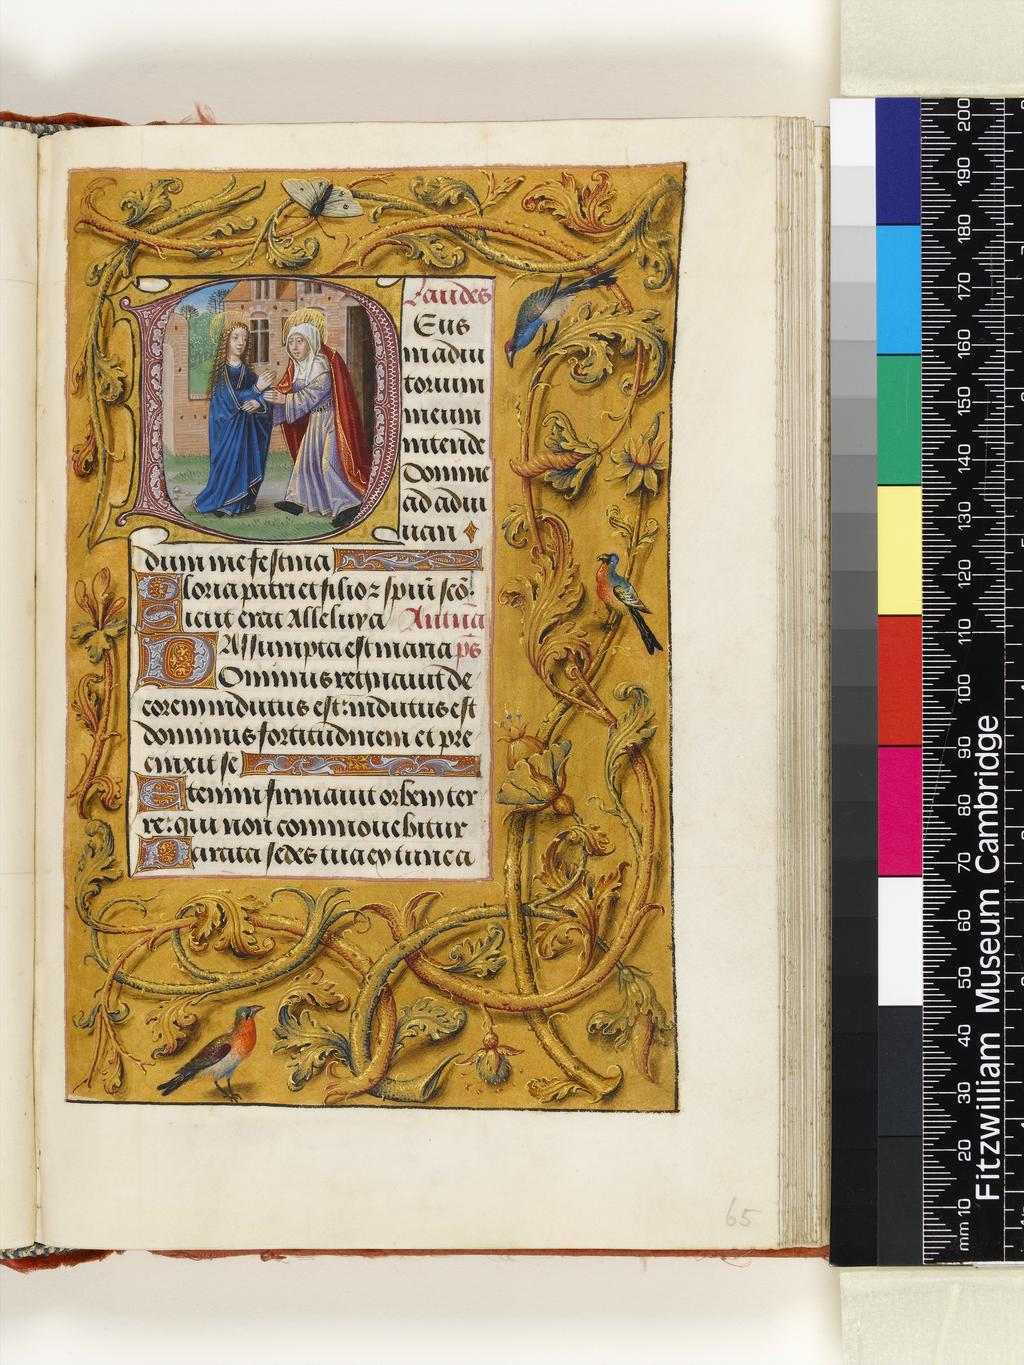 Laudes
Eus
in adiu
torium
meum
intende
Domine
ad adiu
uan
dum me festina
Gloria patri et filio z spūi scō.
Sicut erat Alleluya Antiūa
Assumpta est maria ps
Dominus regnauit de
corem indutus est: indutus est
dominus fortitudinem et pre
cinxit se
Etenim firmauit orbem ter
re: qui non commouebitur
Parata sedes tua ex tunc a
65
Fitzwilliam Museum Cambridge
mm 10 20 30 40 50 60 70 80 90 100 110 120 130 140 150 160 170 180 190 200